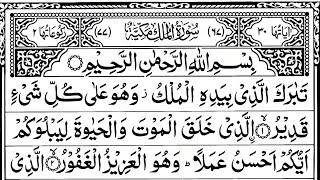 اٰیاتها ٣٠ (٦٧) سُوْرَةُ الْمُلْكِ مَكِّيَّةٌ (٧٧) رکوعاتها ٢
بِسْمِ اللهِ الرَّحْمٰنِ الرَّحِيْمِ
تَبٰرَكَ الَّذِیْ بِیَدِهِ الْمُلْكُ ز وَهُوَ عَلٰی كُلِّ شَیْءٍ
قَدِیْرُ ۝١ اِلَّذِیْ خَلَقَ الْمَوْتَ وَالْحَیٰوةَ لِیَبْلُوَكُمْ
اَیُّكُمْ اَحْسَنُ عَمَلًا ؕ وَهُوَ الْعَزِیْزُ الْغَفُوْرُ ۝٢ الَّذِیْ